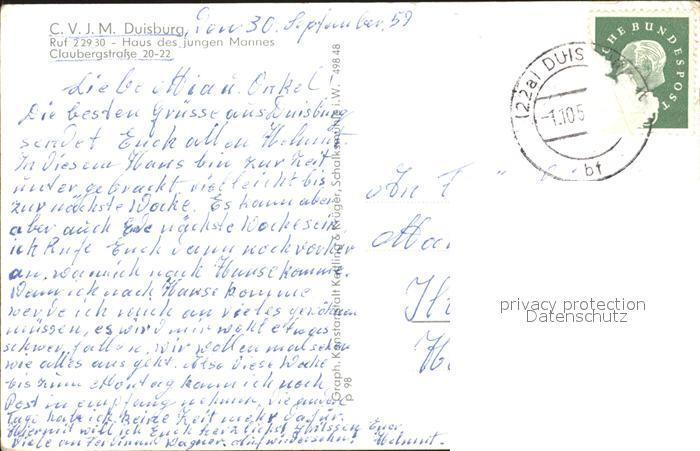 C. V. J. M. Duisburg, den 30. September, 59
Ruf 2 29 30 - Haus des jungen Mannes
Claubergstraße 20-22
Liebe Mia u. Onkel
Die besten Grüsse aus Duisburg
sendet Euch allen Helmut
In diesem Haus bin zur Zeit
untergebracht vielleicht bis
zur nächste Woche. Es kann aber
aber auch Ende nächste Woche sein
ich Rufe Euch dann noch vorher
an, wann ich nach Hause komme.
Wenn ich nach Hause komme
werde ich mich an vieles gewöhnen
müssen, es wird mir wohl etwas
schwer fallen. Wir wollen mal sehen
wie alles aus geht. Also diese Woche
bis zum Montag kann ich noch
Post in empfang nehmen. Die
Tage habe ich keine Zeit mehr dafür.
Hiermit will ich Euch herzlichst grüssen Euer
Viele an Ferdinand Wagner. Auf wiedersehn! Helmut.
Graph. Kunstanstalt Kettling & Krüger, Schalksmühle i. W. 498 48
p 98
CHE BUNDESPOST
(22a) DUIS
-1.10.5
bf
An
privacy protection
Datenschutz